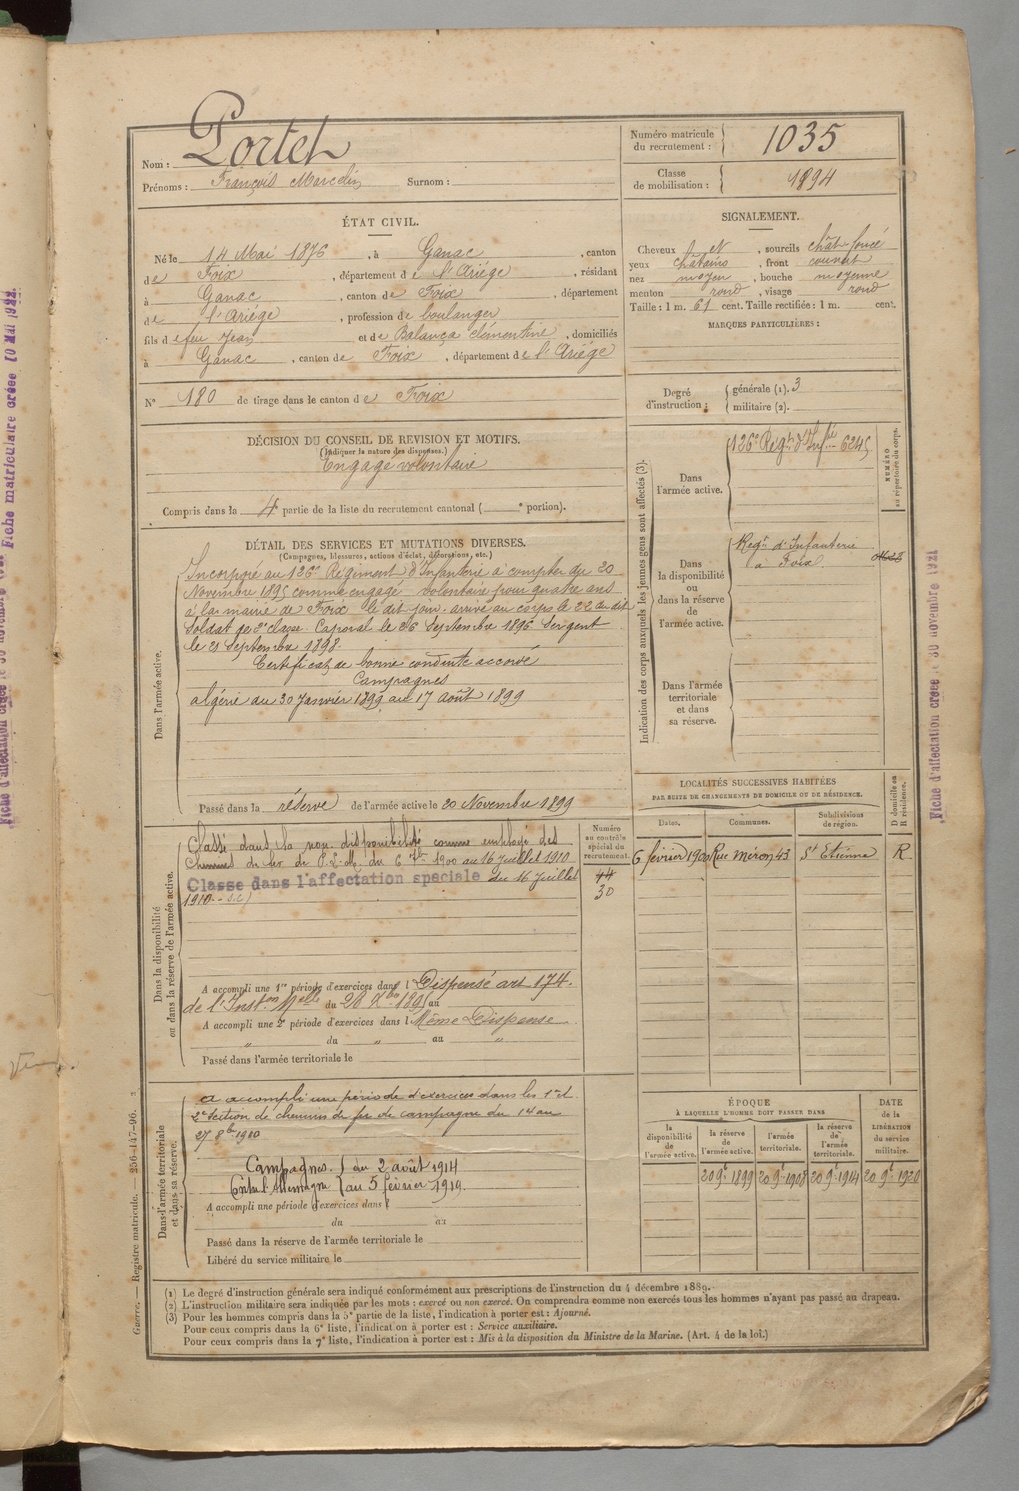 Nom : Portet
Prénoms : François Marcelin Surnom :
Numéro matricule du recrutement : 1035
Classe de mobilisation : 1894
ÉTAT CIVIL.
Né le 14 Mai 1876, à Ganac, canton
de Foix, département de l'Ariège, résidant
à Ganac, canton de Foix, département
de l'Ariège, profession de boulanger
fils de feu Jean et de Balança Clémentine, domiciliés
à Ganac, canton de Foix, département de l'Ariège
N° 180 de tirage dans le canton de Foix
SIGNALEMENT.
Cheveux et, sourcils chât-foncé
yeux châtains, front couvert
nez moyen, bouche moyenne
menton rond, visage rond
Taille : 1 m. 61 cent. Taille rectifiée : 1 m. cent.
MARQUES PARTICULIÈRES :
Degré d'instruction : générale (1). 3
militaire (2).
DÉCISION DU CONSEIL DE REVISION ET MOTIFS.
(Indiquer la nature des dispenses.)
Engagé volontaire
Compris dans la 4 partie de la liste du recrutement cantonal ( e portion).
DÉTAIL DES SERVICES ET MUTATIONS DIVERSES.
(Campagnes, blessures, actions d'éclat, décorations, etc.)
Dans l'armée active.
Incorporé au 126e Régiment d'Infanterie à compter du 20
Novembre 1895 comme engagé volontaire pour quatre ans
à la mairie de Foix le dit jour. arrivé au corps le 22 du dit
Soldat de 2e classe. Caporal le 26 Septembre 1896 Sergent
le 21 Septembre 1898.
Certificat de bonne conduite accordé
Campagnes
algérie du 30 Janvier 1899 au 17 août 1899
Passé dans la réserve de l'armée active le 20 Novembre 1899
Indication des corps auxquels les jeunes gens sont affectés (3).
NUMÉRO au répertoire du corps.
Dans l'armée active.
126e Régt d'Infie 6245
Dans la disponibilité ou dans la réserve de l'armée active.
Regt d'Infanterie
à Foix.
Dans l'armée territoriale et dans sa réserve.
LOCALITÉS SUCCESSIVES HABITÉES
PAR SUITE DE CHANGEMENTS DE DOMICILE OU DE RÉSIDENCE.
Dates. Communes. Subdivisions de région. D domicile ou R résidence.
6 février 1900 Rue Méron 43 St Etienne R
Dans la disponibilité ou dans la réserve de l'armée active.
Numéro au contrôle spécial du recrutement.
Classé dans la non disponibilité comme employé des
Chemins de fer de P.L.M. du 6 1900 au 16 Juillet 1910
Classe dans l'affectation spéciale du 16 Juillet
1910
44
30
A accompli une 1re période d'exercices dans l Dispensé art 174.
de l'Inston Melle du 26 Xbre 1895 au
A accompli une 2e période d'exercices dans l Même Dispense
" du " au "
Passé dans l'armée territoriale le
Dans l'armée territoriale et dans sa réserve.
a accompli une période d'exercices dans les 1re et
2e Section de chemins de fer de campagne du 14 au
27 8bre 1910
Campagnes. du 2 août 1914
Contre l'Allemagne au 5 février 1919.
A accompli une période d'exercices dans l
du au
Passé dans la réserve de l'armée territoriale le
Libéré du service militaire le
ÉPOQUE
À LAQUELLE L'HOMME DOIT PASSER DANS
la disponibilité de l'armée active. la réserve de l'armée active. l'armée territoriale. la réserve de l'armée territoriale.
DATE de la LIBÉRATION du service militaire.
20 9e 1899 20 9e 1908 20 9e 1914 20 9e 1920
(1) Le degré d'instruction générale sera indiqué conformément aux prescriptions de l'instruction du 4 décembre 1889.
(2) L'instruction militaire sera indiquée par les mots : exercé ou non exercé. On comprendra comme non exercés tous les hommes n'ayant pas passé au drapeau.
(3) Pour les hommes compris dans la 5e partie de la liste, l'indication à porter est : Ajourné.
Pour ceux compris dans la 6e liste, l'indication à porter est : Service auxiliaire.
Pour ceux compris dans la 7e liste, l'indication à porter est : Mis à la disposition du Ministre de la Marine. (Art. 4 de la loi.)
Guerre. — Registre matricule. — 256-147-96. 2
Fiche d'affectation créée le 30 novembre 1921
Fiche matriculaire créée 10 Mai 1922.